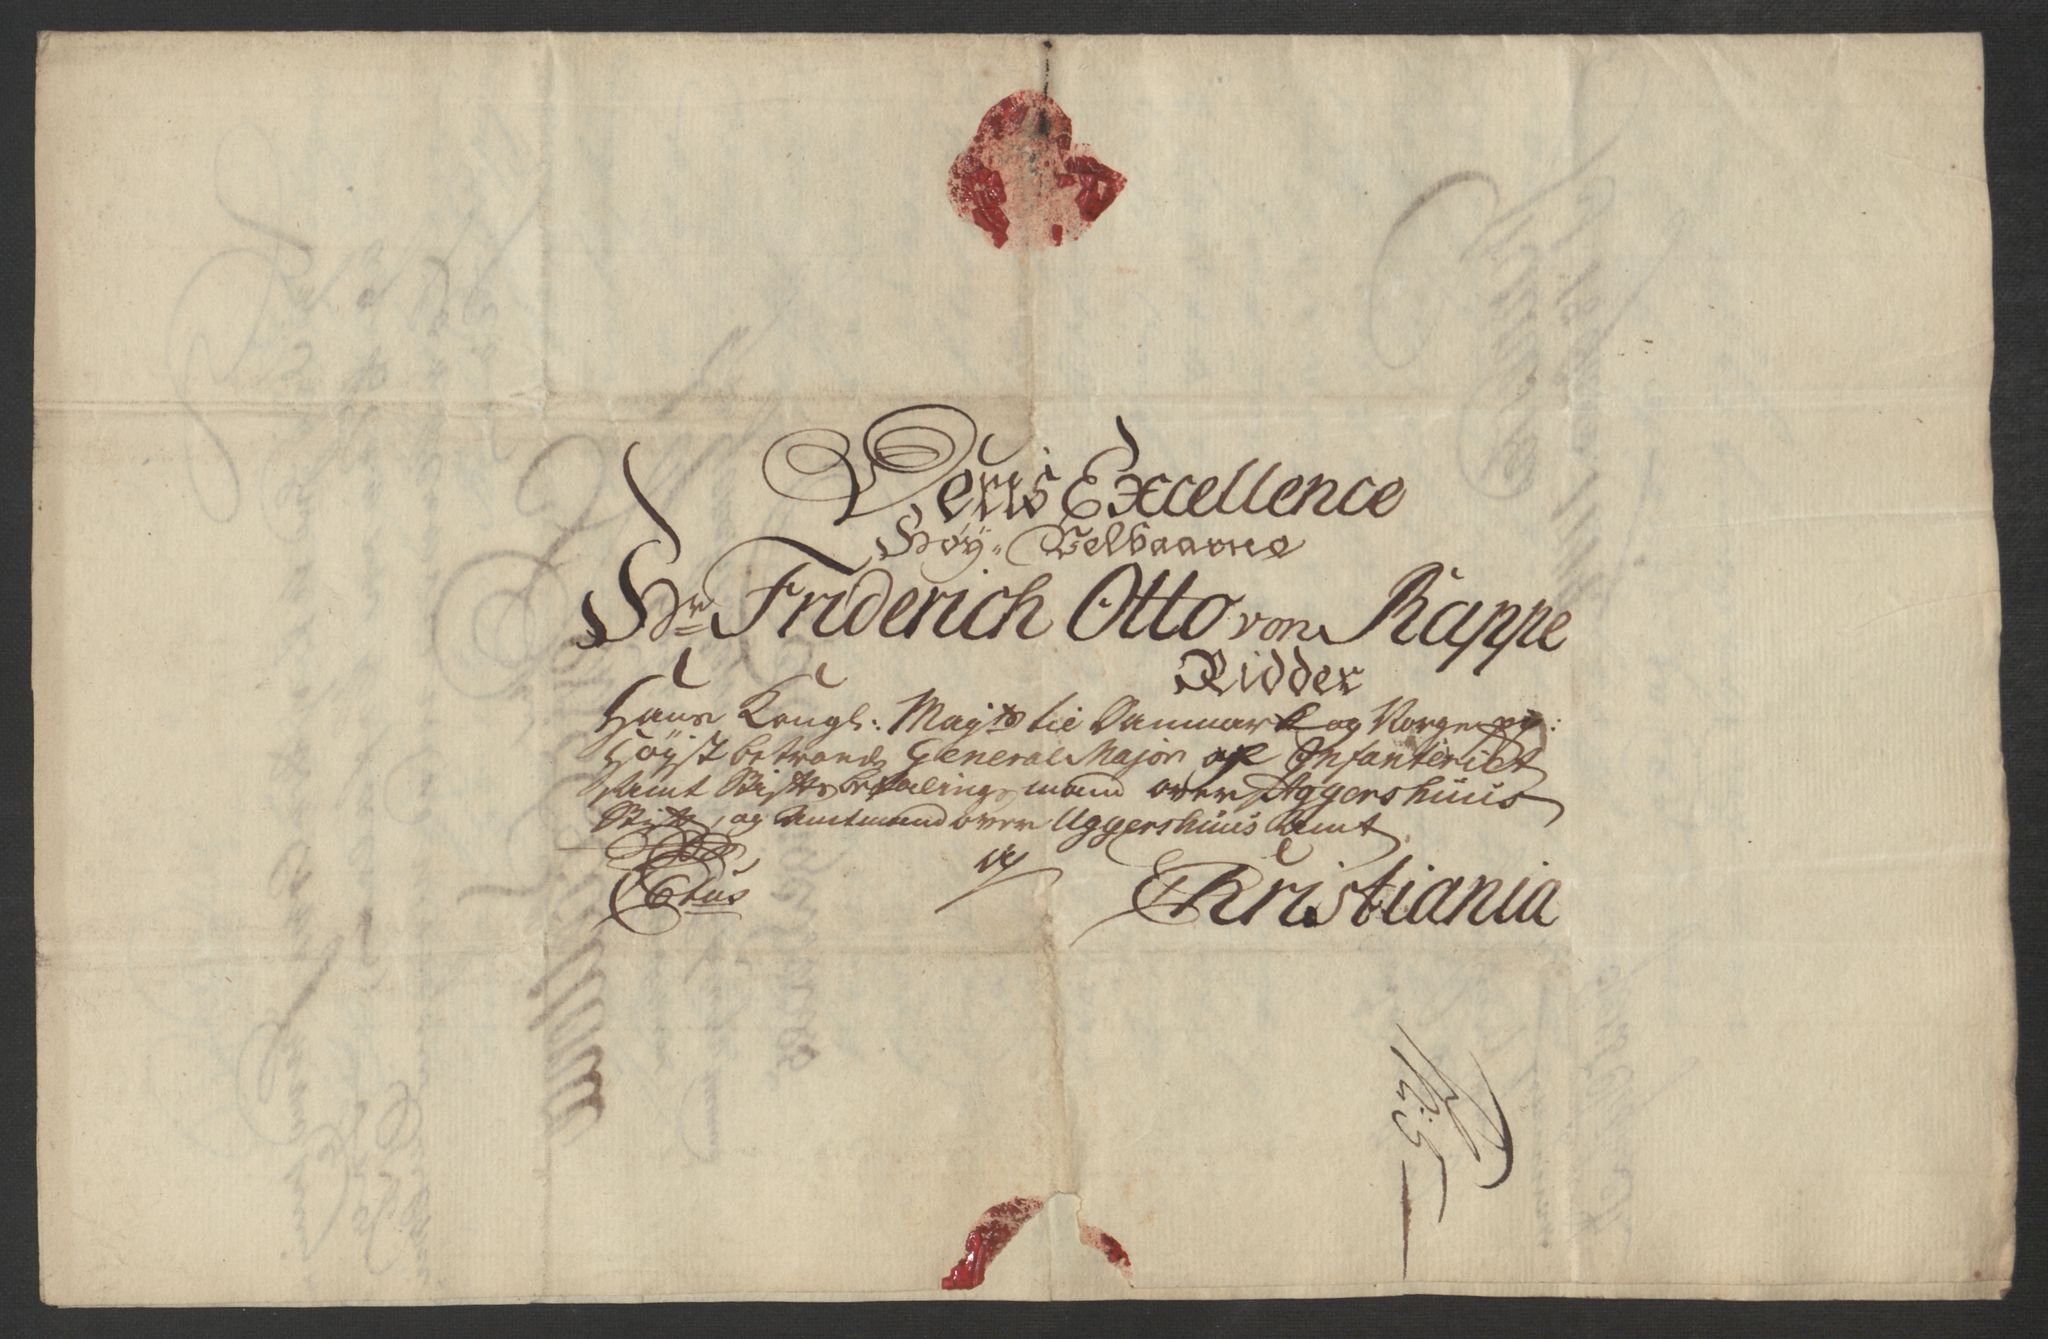 Deris Excellence
Høy-Velbaarne
Hr Friderich Otto von Rappe
Ridder
Hans Kongl: Mayts til Danmark og Norge pp:
Høyst betroede General Major af Infanteriet
samt Stiftsbefalingsmand over Aggershuus
Stift, og Amtmand over Aggershuus Amt
Christiania